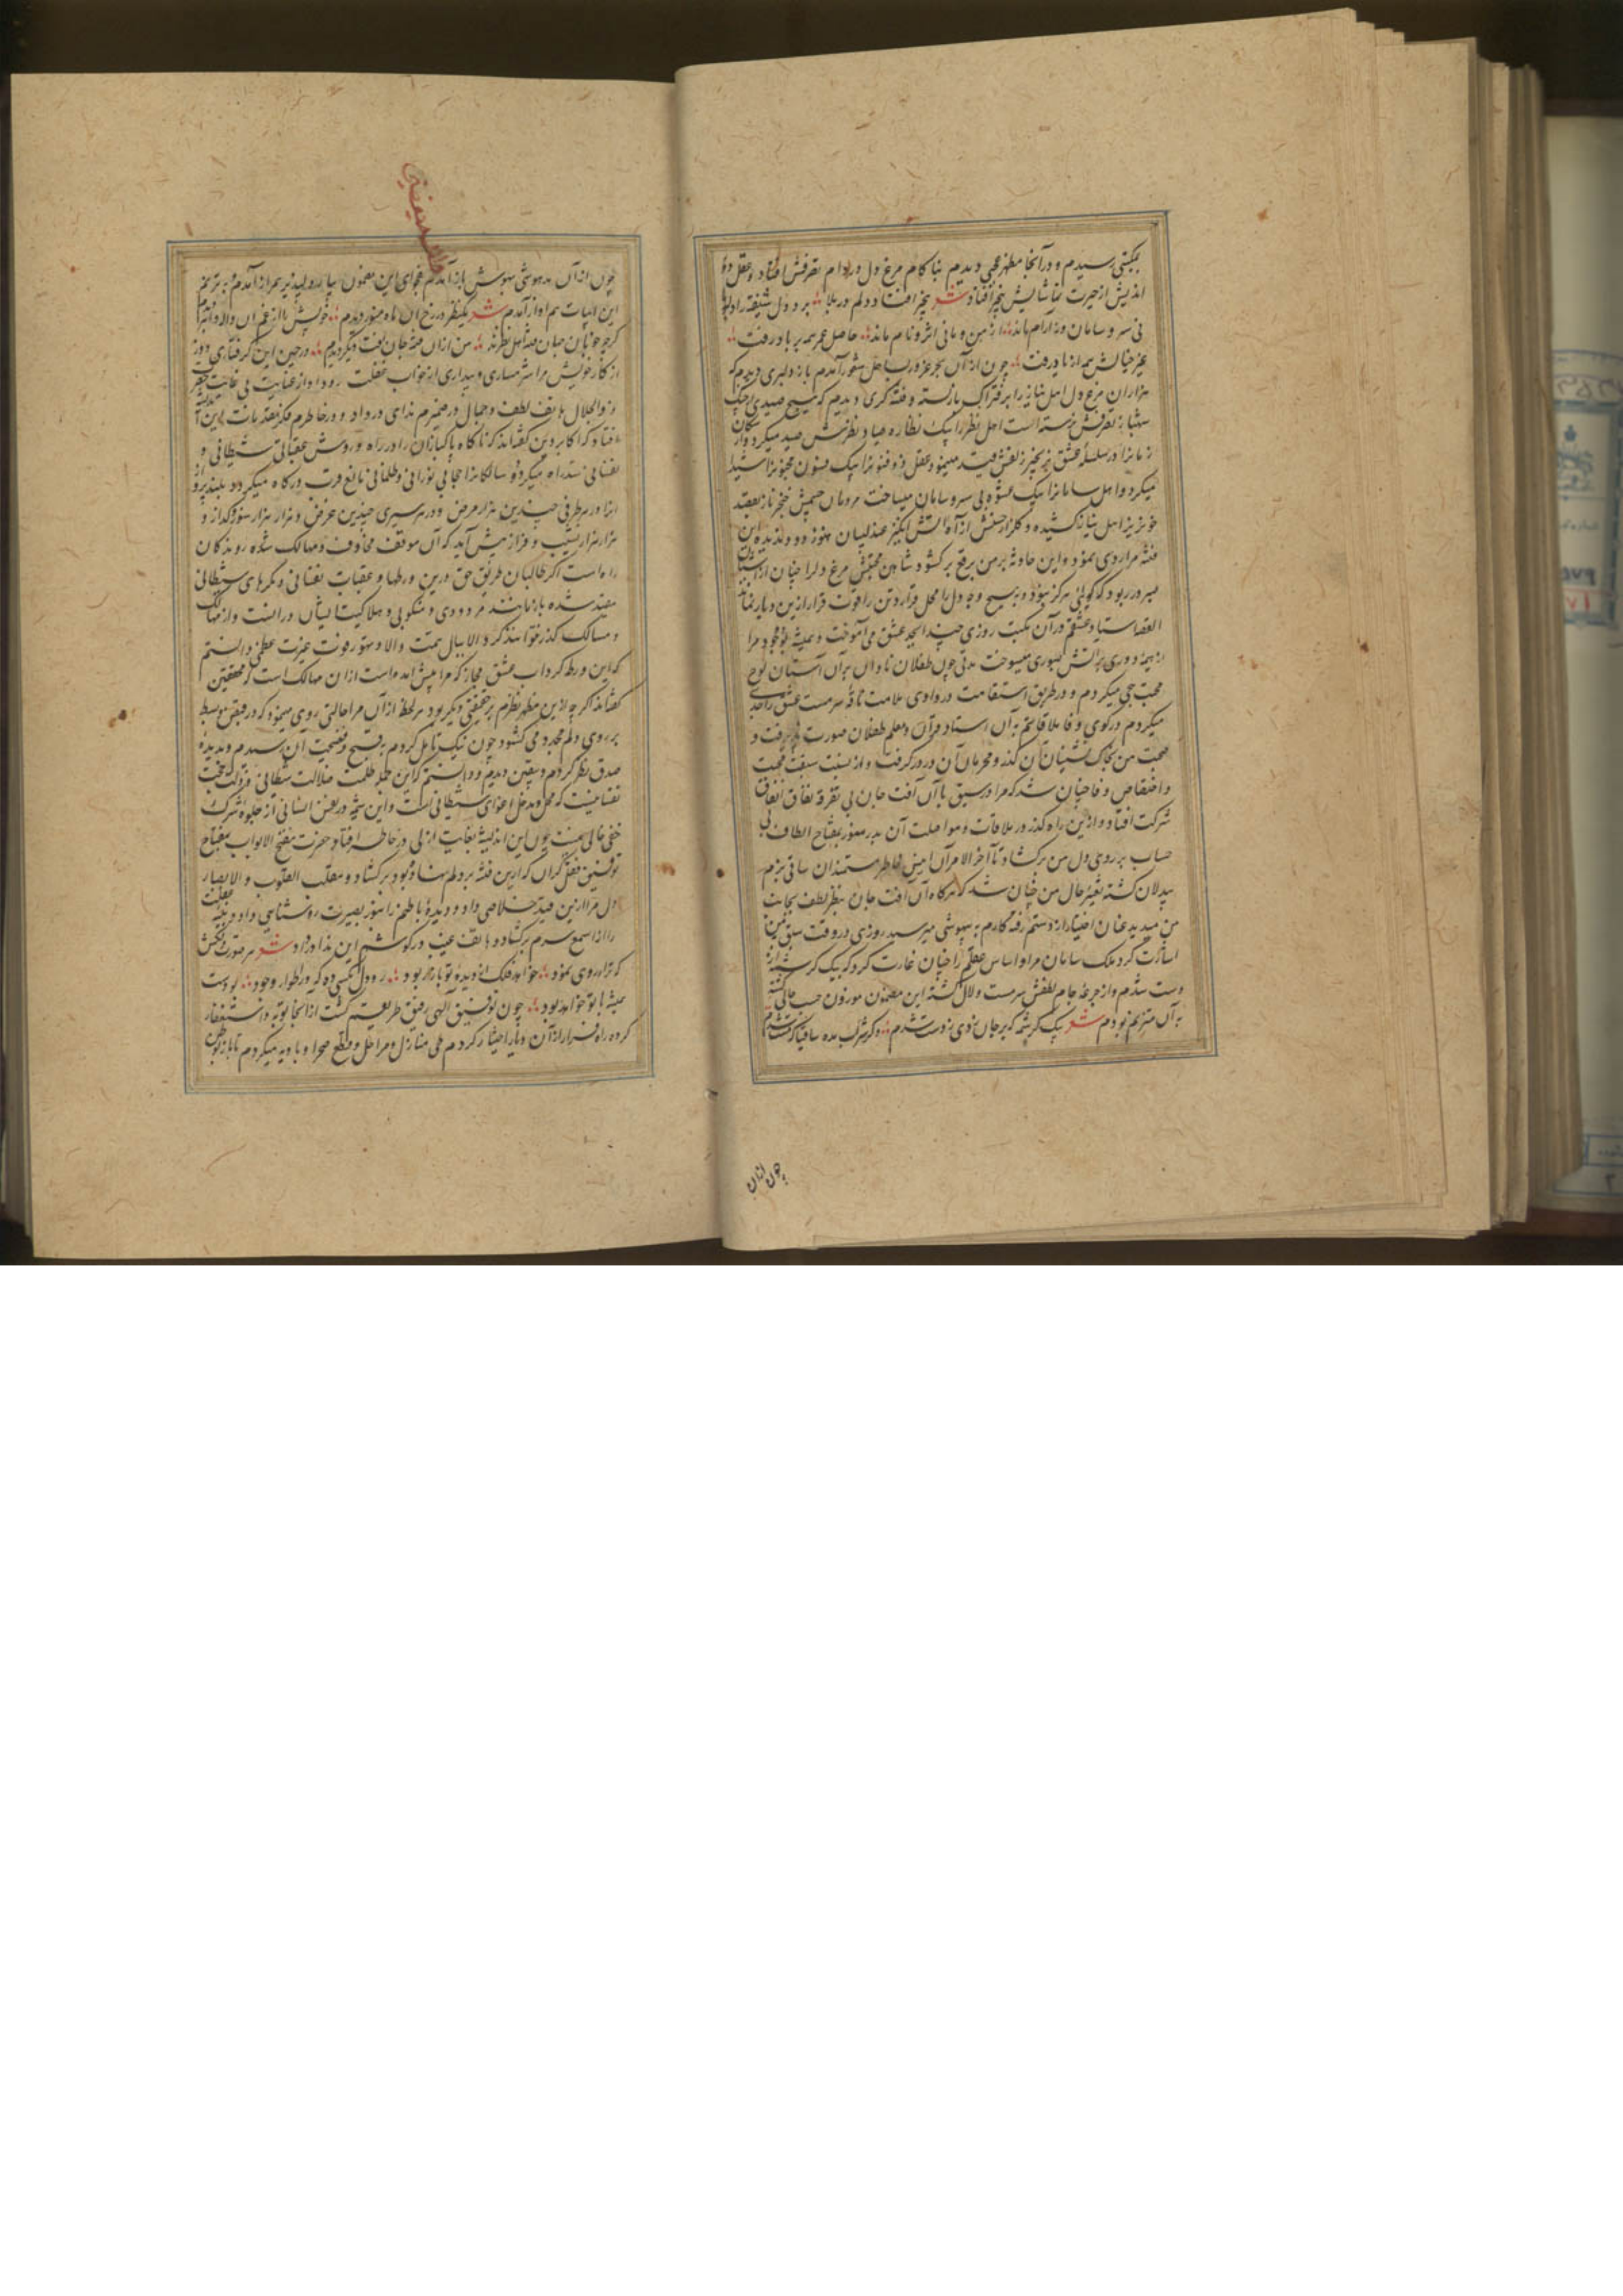 بمکتبی رسیدم و در آنجا مظهر عجبی دیدم بناکام مرغ دل در دام تصرفش افتاد و عقل دور
اندیش از حیرت تماشایش بیخبر افتاد شعر بیخبر افتاد دلم در بلا برد دل شیفته را
نی سر و سامان و نه آرام ماند از من و مانی اثر و نام ماند حاصل عمرم همه بر باد رفت
غیر خیالش همه از یاد رفت چون از آن بحر غرور بساحل شعور آمدم باز دلبری دیدم که
هزاران مرغ دل اهل نیاز را بر فتراک ناز بسته و فتنه گری دیدم که هیچ صیدی از چنگ
شهباز تصرفش نرسته است اهل نظر را بیک نظاره صیاد نظرش صید میکرد و
را در سلسله عشق بزنجیر زلفش قید مینمود و عقل ذو فنونرا بیک فسون مجنون
میکرد و اهل سامانرا بیک عشوه بی سر و سامان میساخت مردمان چشمش خنجر ناز بقصد
خونریز اهل نیاز کشیده و گلزار حسنش از آه آتش انگیز عندلیبان هنوز دود ندیده این
فتنه مرا روی نمود و این حادثه بر من برقع بر کشود شاهین محبتش مرغ دلرا چنان از
میر در ربود که گوئی هرگز نبود و بهیچ وجه دل را محل قرار و تن را قوت فرار ازین دیار نماند
القصه استاد عشقم در آن مکتب روزی چند ابجد عشق می آموخت و همیشه وجود مرا
از هیمه دوری بر آتش صبوری میسوخت مدتی چون طفلان نادان بر آن آستان لوح
محبت حجی میکردم و در طریق استقامت در وادی ملامت ناقه سرمست عشق را حدی
میکردم در کوی وفا ملاقاتم به آن استاد قرآن و معلم طفلان صورت پذیرفت و
صحبت من بخاک نشینان آن کند و محرمان آن در در گرفت و از نسبت سبقت محبت
و اختصاص وفا چنان شد که مرا در سبق با آن آفت جان بی تفرقه نفاق اتفاق
شرکت افتاد و ازین راه گذر در ملاقات و مواصلت آن بدر منور بمفتاح الطاف بی
حساب بر روی دل من بر کشاد تا آخر الامر آن انیس خاطر مستمندان ساقی بزم
بیدلان گشته تغیر حال من چنان شد که هر گاه آن آفت جان بنظر لطف بجانب
من میدید عنان اختیار از دستم رفته کارم به بیهوشی میرسید روزی در وقت سبق
اشارت کرد ملک سامان مرا و اساس عقلم را چنان غارت کرد که بیک کرشمه از
دست شدم و از جرعه جام لطفش سرمست و لال گشته این مضمون موزون حسب حال
به آن مترنم بودم شعر بیک کرشمه که بر جان زدی ز دست شدم دگر شراب مده ساقیا که مست شدم
چون ازان
چون از آن مدهوشی بهوش باز آمدم فحوای این مضمون بیاد و باز آمدم به ترنم
این ابیات هم آواز آمدم شعر یک نظر در رخ آن ماه منور دیدم خویش را از غم آن واله و
گرچه خوبان جهان فتنه اهل نظرند من ازان فتنه جان آفت دیگر دیدم در حین این گرفتاری روز
از کار خویش مرا شرمساری و بیداری از خواب غفلت رو داد و از عنایت بی غایت حضرت
ذو الجلال هاتف لطف و جمال در ضمیرم ندای در داد و در خاطرم فکر تقدیمات این
افتاد که اکابر دین گفته اند که ناگاه پاکبازان را در راه و روش عقباتی شیطانی و
نفسانی سد راه میگردد و سالکانرا حجابی نورانی و ظلمانی مانع قرب درگاه میگردد
را در هر طرفی چندین هزار مرض و در هر سیری چندین غرض و هزار هزار سوز و گداز و
هزار هزار نشیب و فراز پیش آید که آن موقف مخاوف و مهالک شده روندگان
راه است اگر طالبان طریق حق درین ورطها و عقبات نفسانی و مکرهای شیطانی
مقید شده باز مانند مردودی و منکوبی و هلاکیت ایشان در آنست و از مهالک
و مسالک گذر نتوانند کرد الا ببال همت والا و
که این ورطه گرداب عشق مجاز که مرا پیش آمده است ازان مهالک است و محققین
گفته اند اگر چه ازین مظهر نظرم بر حقیقتی دیگر بود هر لحظه از آن مرا حالتی روی مینمود که
بر روی دلم میکشود چون نیک تامل کردم بقبح و فضیحت آن رسیدم و بدیده
صدق نظر کردم و بیقین دیدم و دانستم که این جمله ظلمت ضلالت شیطانی و
نفسانیست که محل و مدخل اغوای شیطانی است و این شیمه در نفس انسانی از جلوه شرک
خفی خالی نیست چون این اندیشه بغایت از لی در خاطر افتاد حضرت مفتح الابواب بمفتاح
توفیق قفل گران که ازین فتنه بر دلم نهاده بود بر کشاد و مقلب القلوب و الابصار
دل مرا ازین قید خلاصی داد و دیده باطنم را بنور بصیرت روشنائی داد و
را از سمع سرم بر کشاد و هاتف غیب در گوشم این ندا در داد شعر هر صورت دلکش
که ترا روی نمود خواهد فلک از دیده تو باز ربود رو دل بکسی ده که در اطوار وجود بودست
همیشه با تو خواهد بود چون توفیق آلهی رفیق طریقم گشت از آنجا توبه و استغفار
کرده راه فرار از آن دیار اختیار کردم طی منازل و مراحل و قطع صحرا و بادیه میکردم تا باز